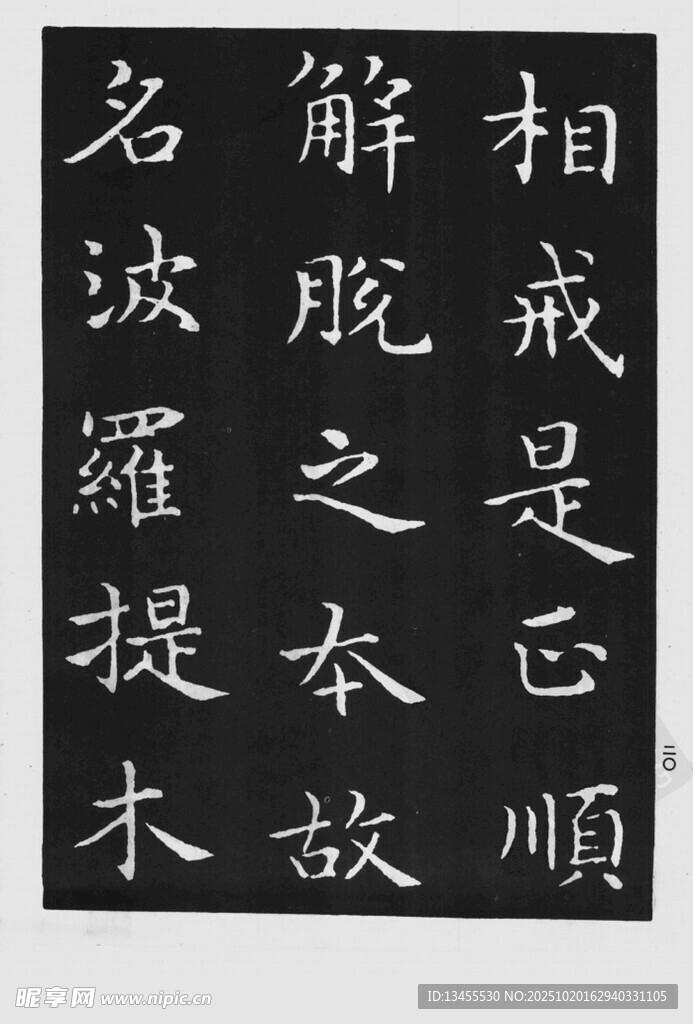 相戒是正順
解脫之本故
名波羅提木
二〇
昵享网 www.nipic.cn
ID:13455530 NO:20251020162940331105